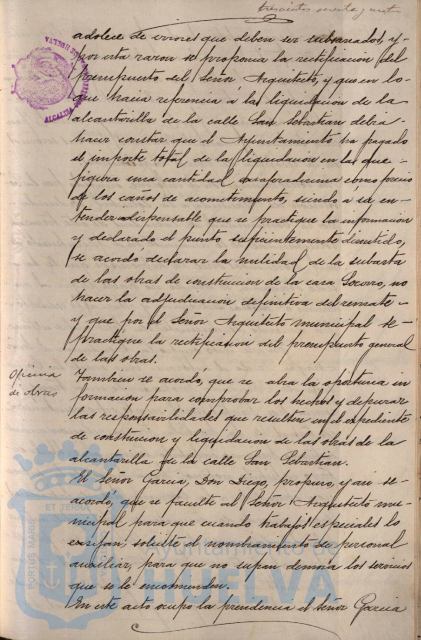 adolece de errores que deben ser subsanados, y
por esta razon se proponia la rectificacion del
presupuesto del Señor Arquitecto, y que en lo
que hacia referencia á la liquidacion de la
alcantarilla de la calle San Sebastian debia
hacer constar que el Ayuntamiento ha pagado
el importe total de la liquidacion en la que
figura una cantidad exageradisima como precio
de los caños de acometimiento, siendo á su en-
tender indispensable que se practique la informacion
y declarado el punto suficientemente discutido,
se acordo declarar la nulidad de la subasta
de las obras de construccion de la casa Socorro, no
hacer la adjudicacion definitiva del remate
y que por el Señor Arquitecto municipal se
practique la rectificacion del presupuesto general
de las obras.
Oficina
de obras
Tambien se acordo, que se abra la oportuna in
formacion para comprobar los hechos y depurar
las responsabilidades que resulten en el expediente
de construcion y liquidacion de las obras de la
alcantarilla de la calle San Sebastian.
El Señor Garcia, Don Diego, propuso, y asi se
acordó, que se faculte al Señor Arquitecto mu-
nicipal para que cuando trabajos especiales lo
exijan, solicite el nombramiento de personal
auxiliar, para que no sufran demora los servicios
que se le encomienden.
En este acto ocupó la presidencia el Señor Garcia
PORTUS MARIS ET TERRAE
Ayuntamiento de
HUELVA